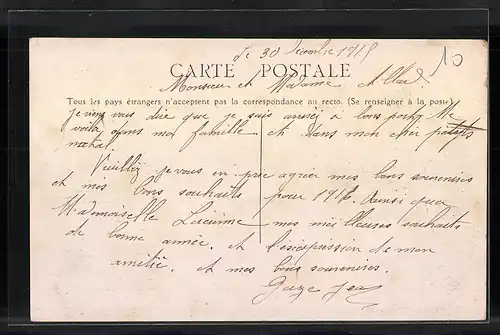 le 30 Décembre 191
CARTE POSTALE
Monsieur et Madame
Tous les pays étrangers n'acceptent pas la correspondance au recto. (Se renseigner à la poste)
je vous dire que je suis arrivé à bons port Me
voila dans ma famille et dans mon cher
natal.
Veuillez je vous en prie agrier mes bons souvenires
et mes bons souhaits pour 191 Ainsi que
Mademoiselle mes meilleures souhaits
de bonne année. et l'expression de mon
amitié. et mes bons souvenires.